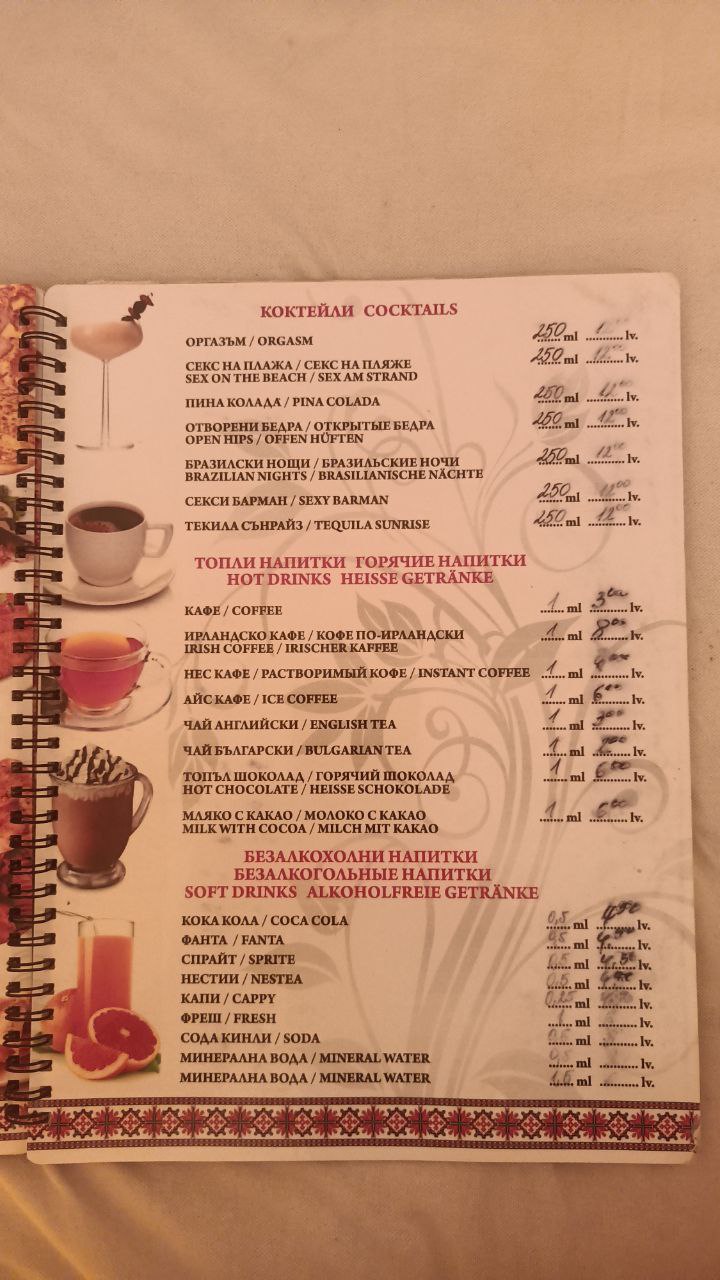 КОКТЕЙЛИ COCKTAILS
ОРГАЗЪМ / ORGASM 250 ml lv.
СЕКС НА ПЛАЖА / СЕКС НА ПЛЯЖЕ 250 ml 12.00 lv.
SEX ON THE BEACH / SEX AM STRAND
ПИНА КОЛАДА / PINA COLADA 250 ml 12.00 lv.
ОТВОРЕНИ БЕДРА / ОТКРЫТЫЕ БЕДРА 250 ml 12.00 lv.
OPEN HIPS / OFFEN HÜFTEN
БРАЗИЛСКИ НОЩИ / БРАЗИЛЬСКИЕ НОЧИ 250 ml 12.00 lv.
BRAZILIAN NIGHTS / BRASILIANISCHE NÄCHTE
СЕКСИ БАРМАН / SEXY BARMAN 250 ml 12.00 lv.
ТЕКИЛА СЪНРАЙЗ / TEQUILA SUNRISE 250 ml 12.00 lv.
ТОПЛИ НАПИТКИ ГОРЯЧИЕ НАПИТКИ
HOT DRINKS HEISSE GETRÄNKE
КАФЕ / COFFEE 1 ml 3.00 lv.
ИРЛАНДСКО КАФЕ / КОФЕ ПО-ИРЛАНДСКИ 1 ml 8.00 lv.
IRISH COFFEE / IRISCHER KAFFEE
НЕС КАФЕ / РАСТВОРИМЫЙ КОФЕ / INSTANT COFFEE 1 ml lv.
АЙС КАФЕ / ICE COFFEE 1 ml 6.00 lv.
ЧАЙ АНГЛИЙСКИ / ENGLISH TEA 1 ml 3.00 lv.
ЧАЙ БЪЛГАРСКИ / BULGARIAN TEA 1 ml lv.
ТОПЪЛ ШОКОЛАД / ГОРЯЧИЙ ШОКОЛАД 1 ml 6.00 lv.
HOT CHOCOLATE / HEISSE SCHOKOLADE
МЛЯКО С КАКАО / МОЛОКО С КАКАО 1 ml lv.
MILK WITH COCOA / MILCH MIT KAKAO
БЕЗАЛКОХОЛНИ НАПИТКИ
БЕЗАЛКОГОЛЬНЫЕ НАПИТКИ
SOFT DRINKS ALKOHOLFREIE GETRÄNKE
КОКА КОЛА / COCA COLA 0,5 ml 4,50 lv.
ФАНТА / FANTA 0,5 ml 4,50 lv.
СПРАЙТ / SPRITE 0,5 ml 4,50 lv.
НЕСТИИ / NESTEA 0,5 ml lv.
КАПИ / CAPPY 0,25 ml lv.
ФРЕШ / FRESH 1 ml lv.
СОДА КИНЛИ / SODA 0,5 ml lv.
МИНЕРАЛНА ВОДА / MINERAL WATER 0,5 ml lv.
МИНЕРАЛНА ВОДА / MINERAL WATER 1,5 ml lv.